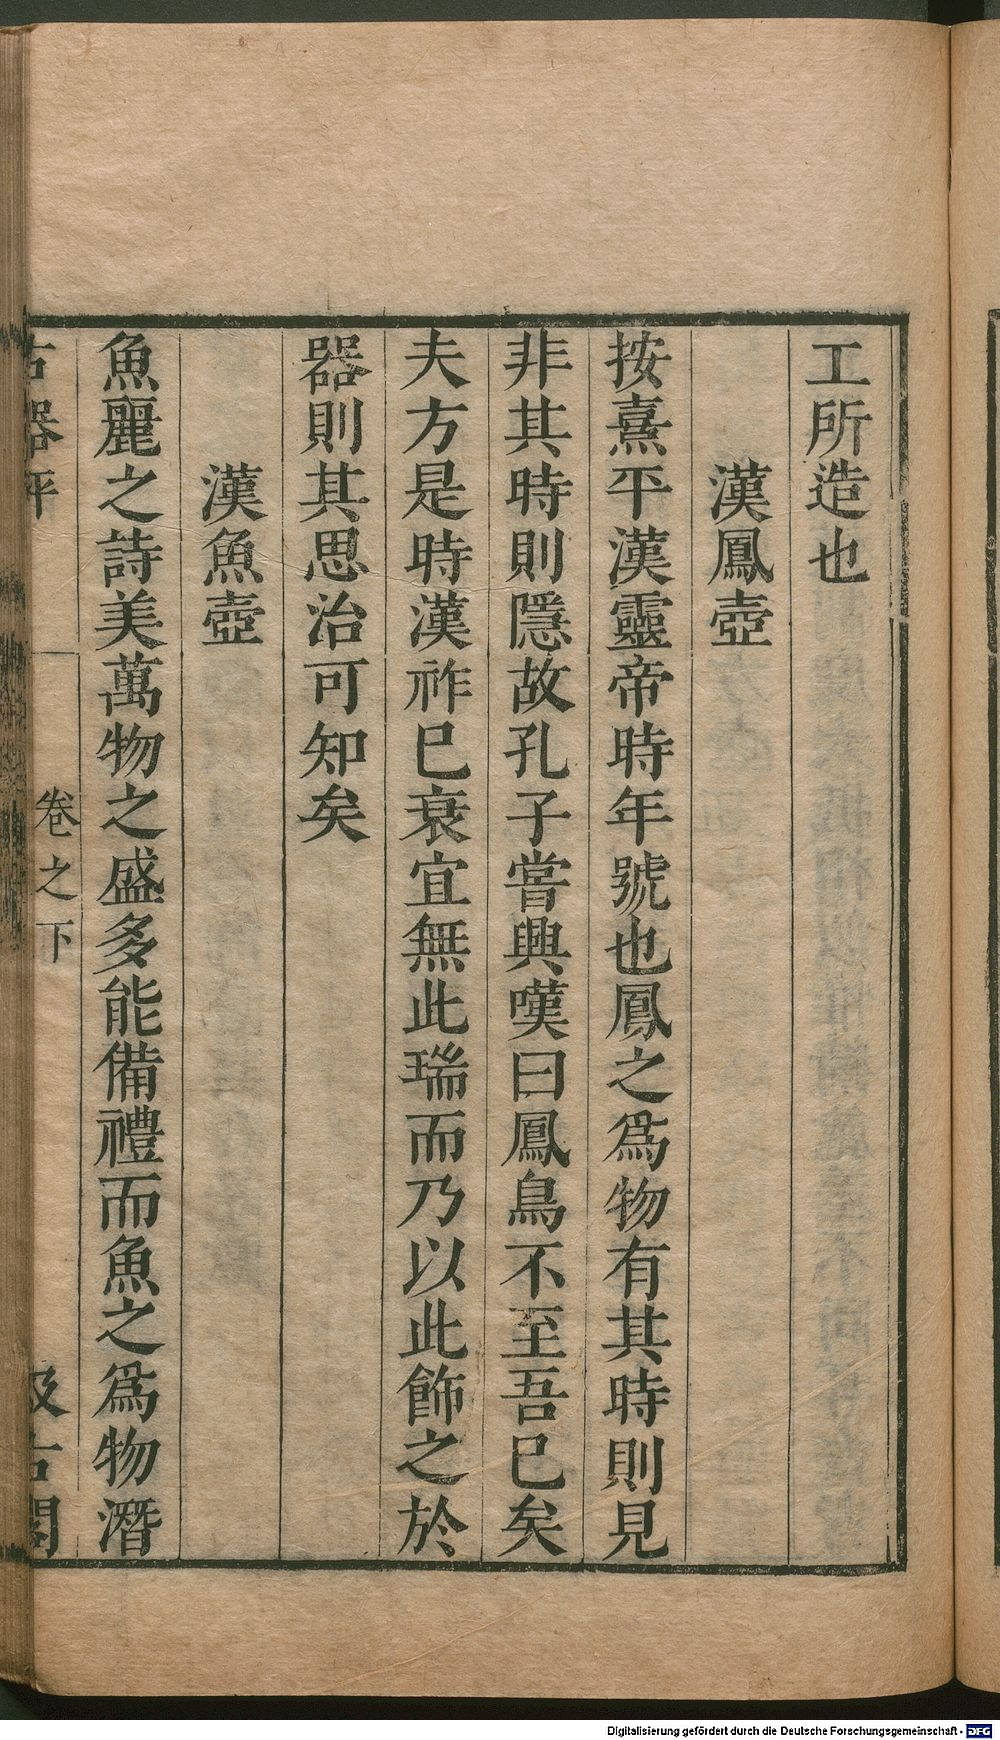 工所造也
漢鳳壺
按熹平漢靈帝時年號也鳳之爲物有其時則見
非其時則隱故孔子嘗興嘆曰鳳鳥不至吾巳矣
夫方是時漢祚巳衰宜無此瑞而乃以此飾之於
器則其思治可知矣
漢魚壺
魚麗之詩美萬物之盛多能備禮而魚之爲物潛
古器評 卷之下 汲古閣
Digitalisierung gefördert durch die Deutsche Forschungsgemeinschaft - DFG